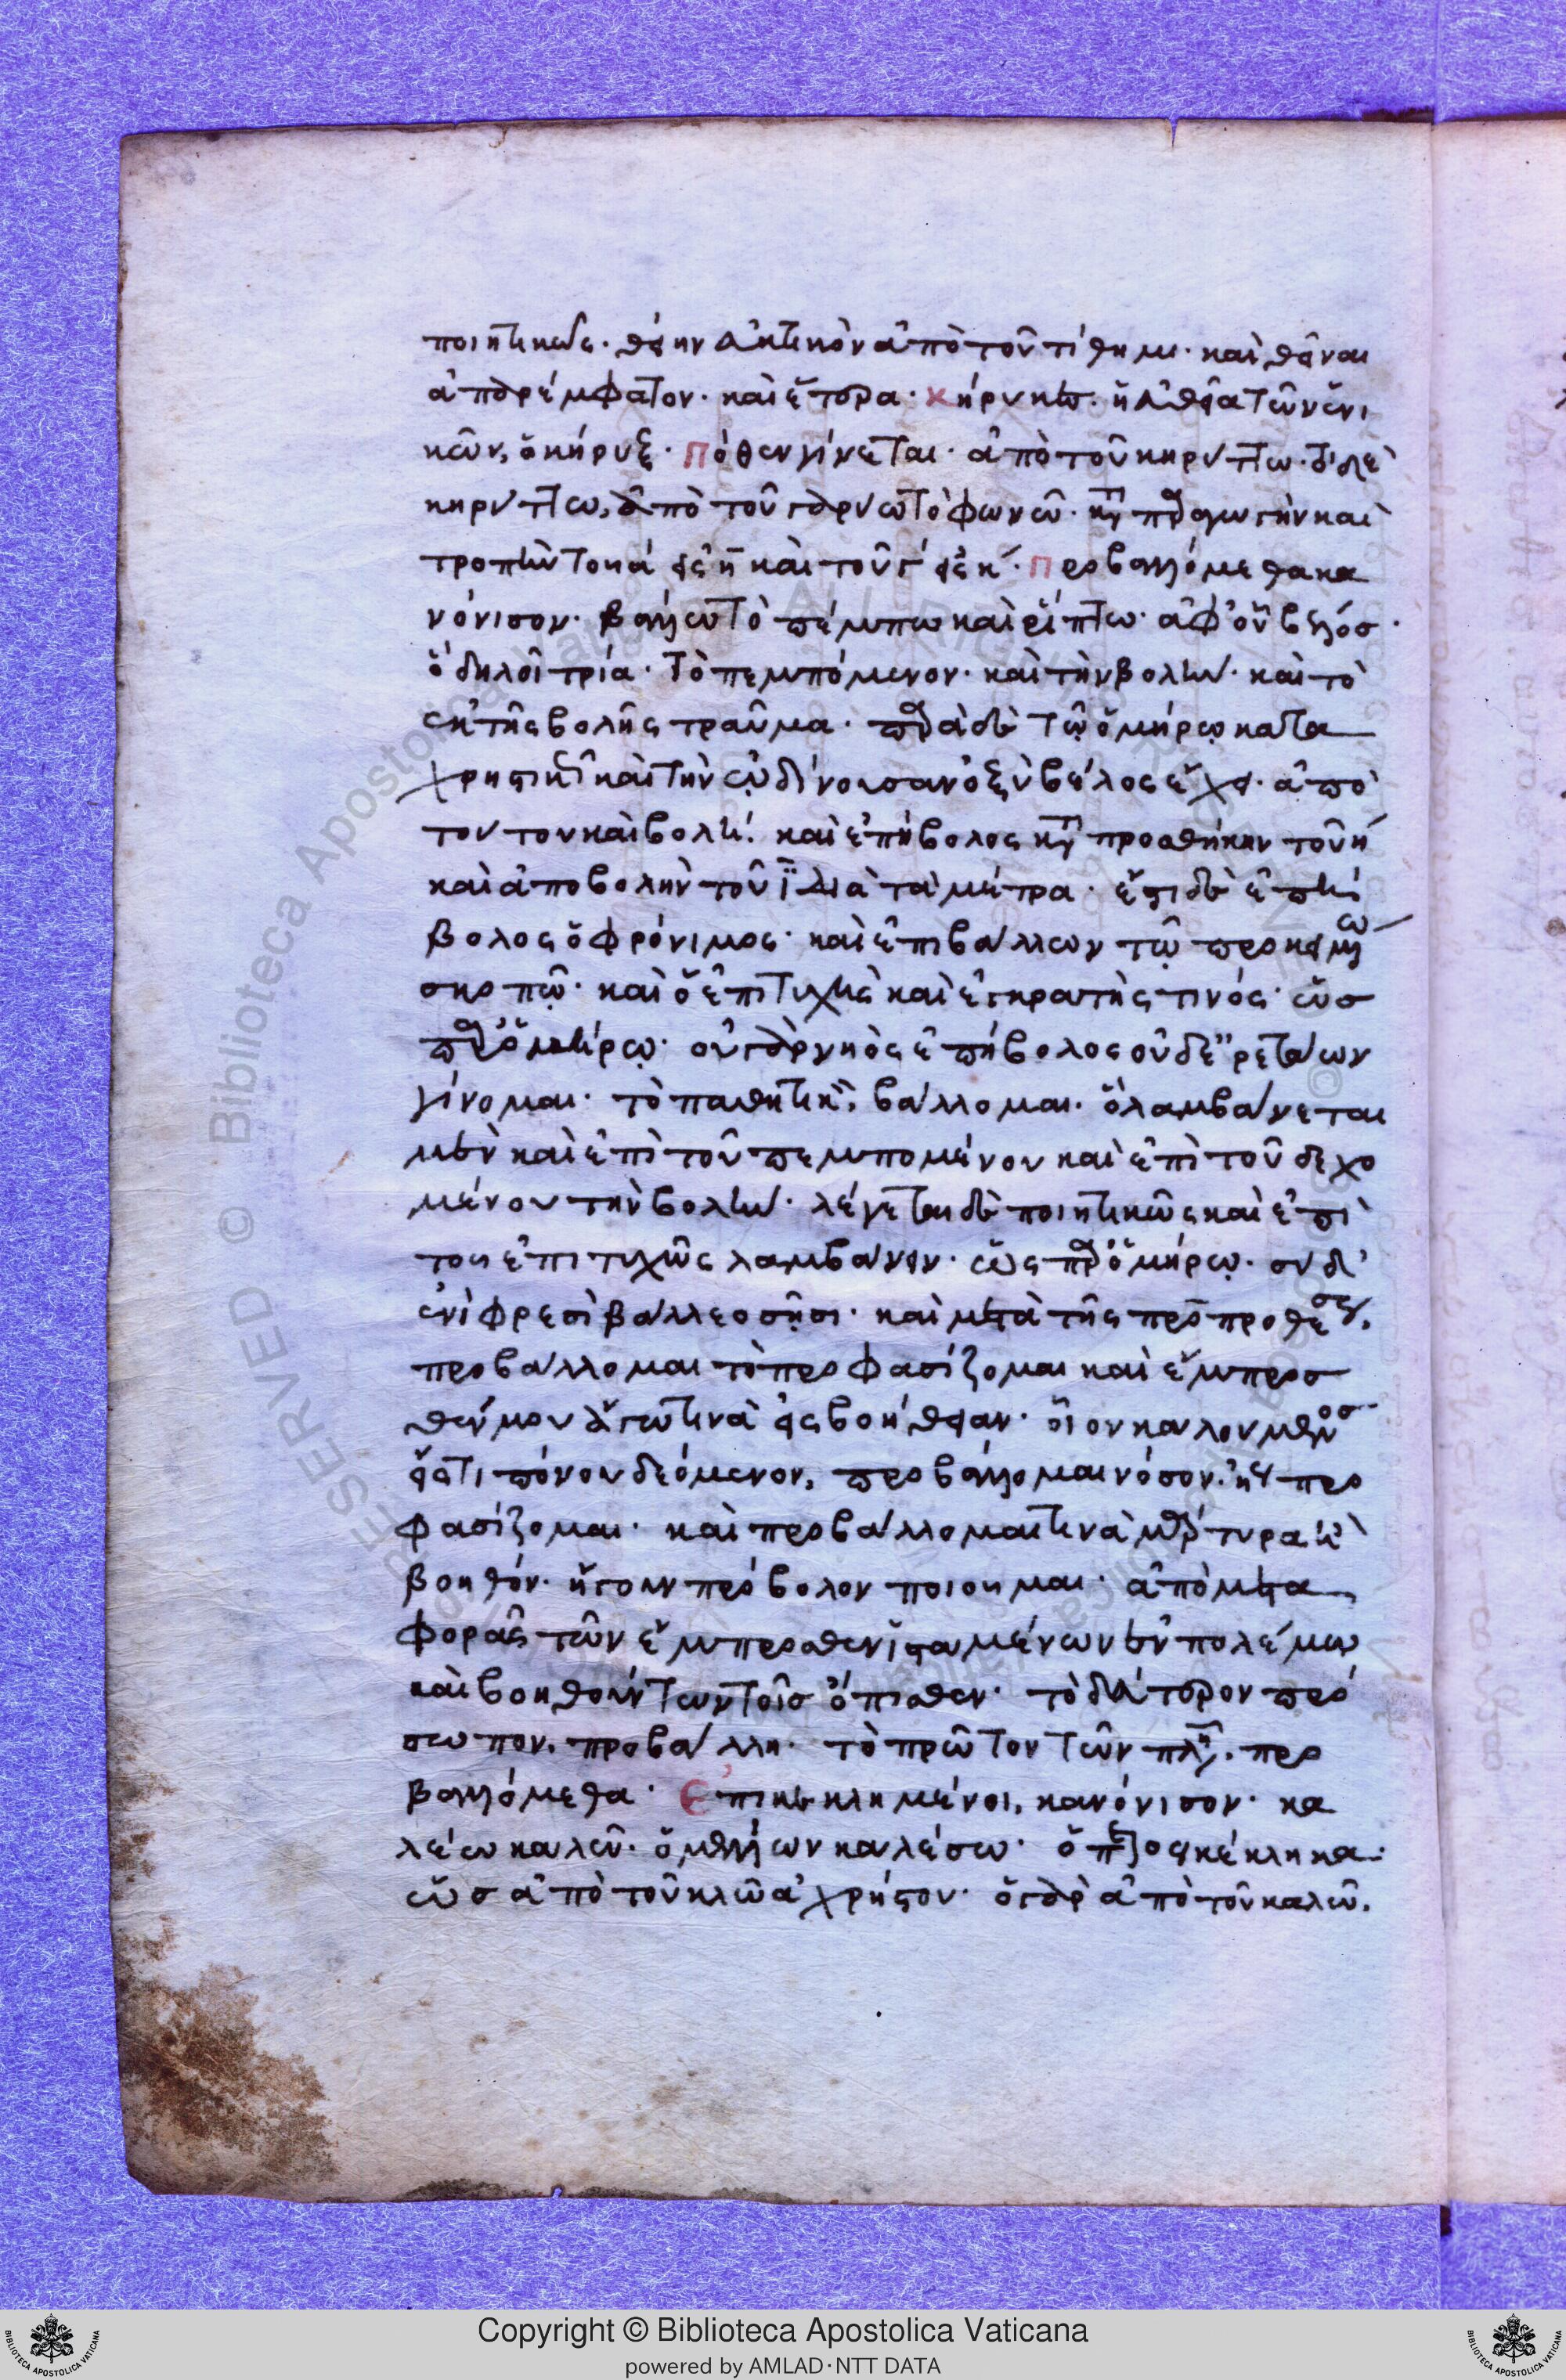 ποιητικῶς· θείην εὐκτικὸν ἀπὸ τοῦ τίθημι· καὶ θεῖναι
ἀπαρέμφατον· καὶ ἕτερα· κήρυκες· ἡ εὐθεῖα τῶν ἑνι
κῶν, ὁ κήρυξ· Πόθεν γίνεται· ἀπὸ τοῦ κηρύττω· τὸ δὲ
κηρύττω, ἀπὸ τοῦ γαρύω τὸ φωνῶ· κατὰ παραγωγὴν καὶ
τροπὴν τοῦ α εἰς η καὶ τοῦ γ εἰς κ· Προβαλλόμεθα κα
νόνισον· βάλλω τὸ πέμπω καὶ ῥίπτω· ἀφ' οὗ βέλος·
ὃ δηλοῖ τρία· τὸ πεμπόμενον· καὶ τὴν βολήν· καὶ τὸ
ἐκ τῆς βολῆς τραῦμα· παρὰ δὲ τῷ ὁμήρῳ κατα
χρηστικῶς καὶ τὴν ὠδίνουσαν ὀξὺ βέλος ἔχει· ἀπὸ
τούτου καὶ βολή· καὶ ἐπήβολος κατὰ προσθήκην τοῦ η
καὶ ἀποβολὴν τοῦ ϊ διὰ τὰ μέτρα· ἔστι δὲ ἐπή
βολος ὁ φρόνιμος· καὶ ἐπιβάλλων τῷ προκειμένῳ
σκοπῷ· καὶ ὁ ἐπιτυχὴς καὶ ἐγκρατής τινός· ὡς
παρ' ὁμήρῳ· οὐ γὰρ νηὸς ἐπήβολος οὐδ' ἐρετάων
γίνομαι· τὸ παθητικὸν, βάλλομαι· ὃ λαμβάνεται
μὲν καὶ ἐπὶ τοῦ πεμπομένου καὶ ἐπὶ τοῦ δεχο
μένου τὴν βολήν· λέγεται δὲ ποιητικῶς καὶ ἐπὶ
τοῦ ἐπιτυχῶς λαμβάνειν· ὡς παρ' ὁμήρῳ· σὺ δ'
ἐνὶ φρεσὶ βάλλεο σῇσι· καὶ μετὰ τῆς πρὸ προθέσεως,
προβάλλομαι τὸ προφασίζομαι καὶ ἔμπροσ
θέν μου ἄγω τινὰ εἰς βοήθειαν· οἷον καλούμενος
εἴς τι πόνου δεόμενον, προβάλλομαι νόσον· ἤγουν προ
φασίζομαι· καὶ προβάλλομαί τινα μάρτυρα ἢ
βοηθόν· ἤγουν πρόβολον ποιοῦμαι· ἀπὸ μετα
φορᾶς τῶν ἔμπροσθεν ἱσταμένων ἐν πολέμῳ
καὶ βοηθούντων τοῖς ὄπισθεν· τὸ δεύτερον πρό
σωπον, προβάλλῃ· τὸ πρῶτον τῶν πληθυντικῶν, προ
βαλλόμεθα· Ἐπικεκλημένοι, κανόνισον· κα
λέω καλῶ· ὁ μέλλων καλέσω· ὁ παρακείμενος κέκληκα·
ὡς ἀπὸ τοῦ κλῶ ἀχρήστου· ὁ γὰρ ἀπὸ τοῦ καλῶ,
Copyright © Biblioteca Apostolica Vaticana
powered by AMLAD·NTT DATA